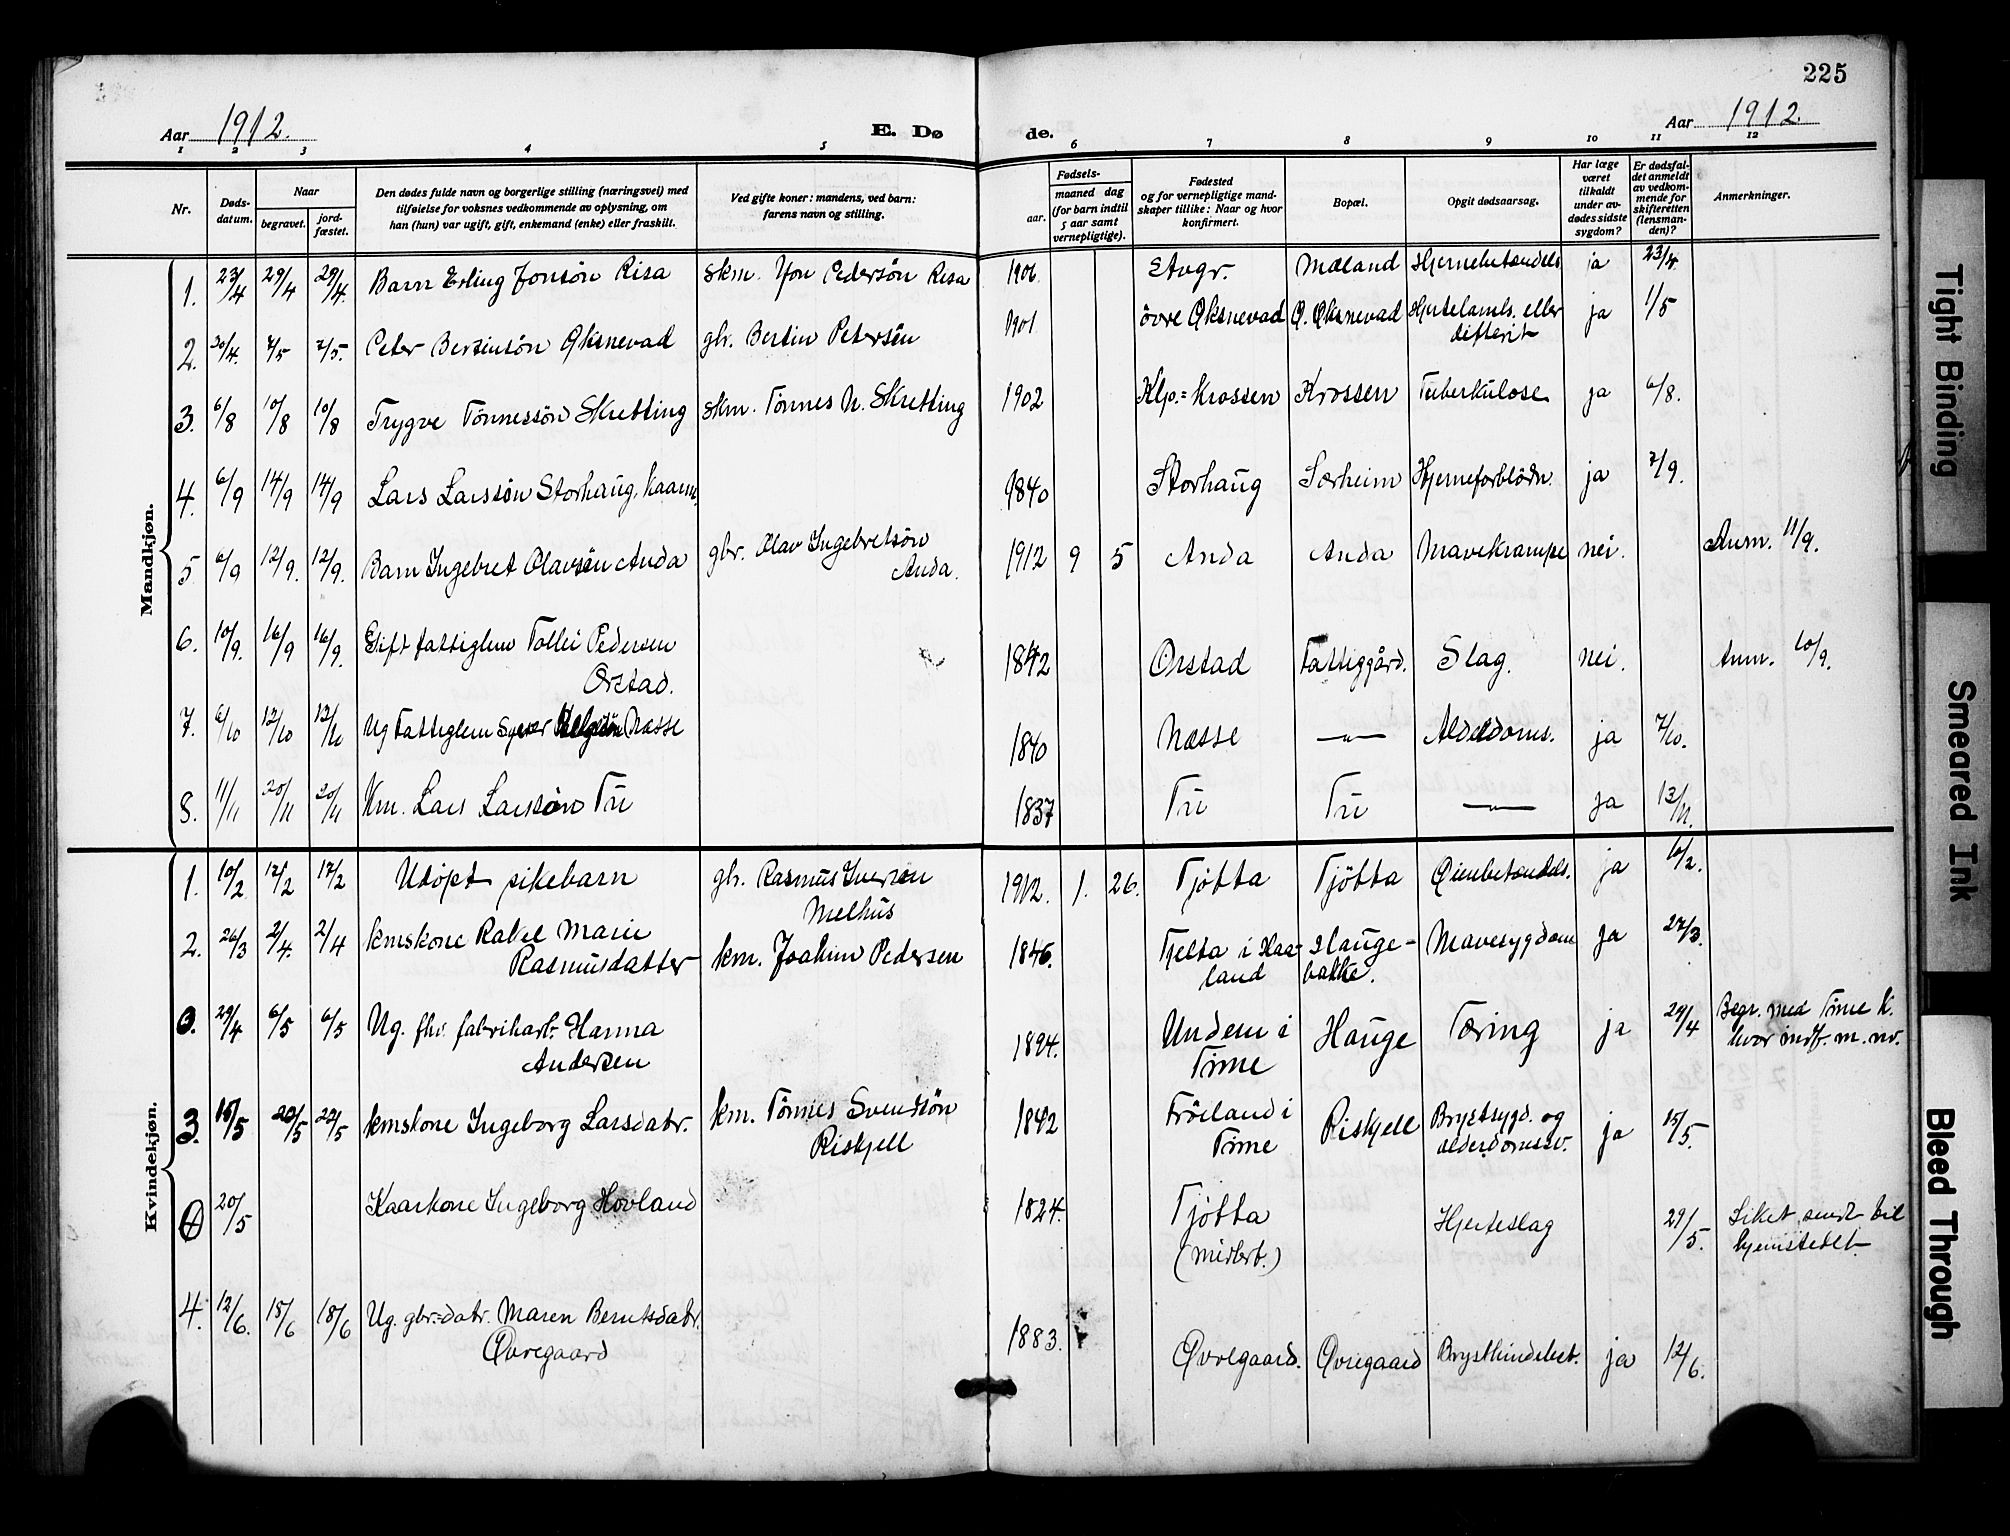 225
Aar 1912. E. Døde. Aar 1912.
1 2 3 4 5 6 7 8 9 10 11 12
Nr. Dødsdatum. Naar begravet. jordfæstet. Den dødes fulde navn og borgerlige stilling (næringsvei) med tilføielse for voksnes vedkommende av oplysning, om han (hun) var ugift, gift, enkemand (enke) eller fraskilt. Ved gifte koner: mandens, ved barn: farens navn og stilling. Fødsels- aar. maaned dag (for barn indtil 5 aar samt vernepligtige). Fødested og for vernepligtige mandskaper tillike: Naar og hvor konfirmert. Bopæl. Opgit dødsaarsag. Har læge været tilkaldt under avdødes sidste sygdom? Er dødsfaldet anmeldt av vedkommende for skifteretten (lensmanden)? Anmerkninger.
Mandkjøn.
1. 23/4 29/4 29/4. Barn Erling Jonsön Risa skm. Jon Pedersön Risa 1906 Stvgr. Mæland Hjernebetændels. ja 23/4.
2. 30/4. 7/5 7/5. Peter Bertinsön Øksnevad gbr. Bertin Petersön 1901 övre Øksnevad Ø. Øksnevad Hjertelamh. eller difterit ja 1/5
3. 6/8 10/8 10/8 Trygve Tönnessön Skretting skm. Tönnes N. Skretting 1902 Klp.=Krossen Krossen Tuberkulose ja 6/8.
4. 6/9 14/9 14/9 Lars Larssön Storhaug, kaarm. 1840 Storhaug Særheim Hjerneforblödn. ja 7/9.
5. 6/9 12/9. 12/9. Barn Ingebret Olavsön Anda gbr. Olav Ingebretsön Anda. 1912 9 5 Anda Anda Mavekrampe nei. Anm. 11/9.
6. 10/9. 16/9 16/9. Gift fattiglem Tollei Pedersen Orstad. 1842 Orstad Fattiggård. Slag. nei. Anm. 10/9.
7. 6/10 12/10 12/10 Ug Fattiglem Syver Næsse 1840 Næsse —„— Alderdoms. ja 7/10.
8. 11/11 20/11 20/11 Km. Lars Larssön Tu 1837 Tu Tu —„— ja 13/11.
Kvindekjøn.
1. 10/2 17/2 17/2 Udöpt pikebarn gbr. Rasmus Iversen Melhus 1912. 1. 26. Tjötta Tjötta Øienbetændels. ja 10/2.
2. 26/3 2/4. 2/4 kmskone Rakel Marie Rasmusdatter km. Joakim Pedersen 1846. Tjelta i Haaland Haugebakke. Mavesygdom ja 27/3.
0. 29/4 6/5 6/5 Ug. fhv. fabrikarb. Hanna Andersen 1894. Undem i Time Hauge Tæring ja 29/4 Begr. med Time k. hvor indf. m. nr.
3. 15/5 20/5 20/5 kmskone Ingeborg Larsdatr. km. Tönnes Svendsön Riskjell 1842 Fröiland i Time Riskjell Brystsygd. og alderdomssv. ja 15/5.
0 20/5 Kaarkone Ingeborg Hovland 1824. Tjötta (midlert.) Hjerteslag 29/5. Liket sendt til hjemstedet.
4. 12/6. 18/6 18/6 Ug. gbr.=datr. Maren Berntsdatr. Øvregaard 1883. Øvregaard. Øvregaard Brysthindebet. ja 12/6.
Tight Binding
Smeared Ink
Bleed Through